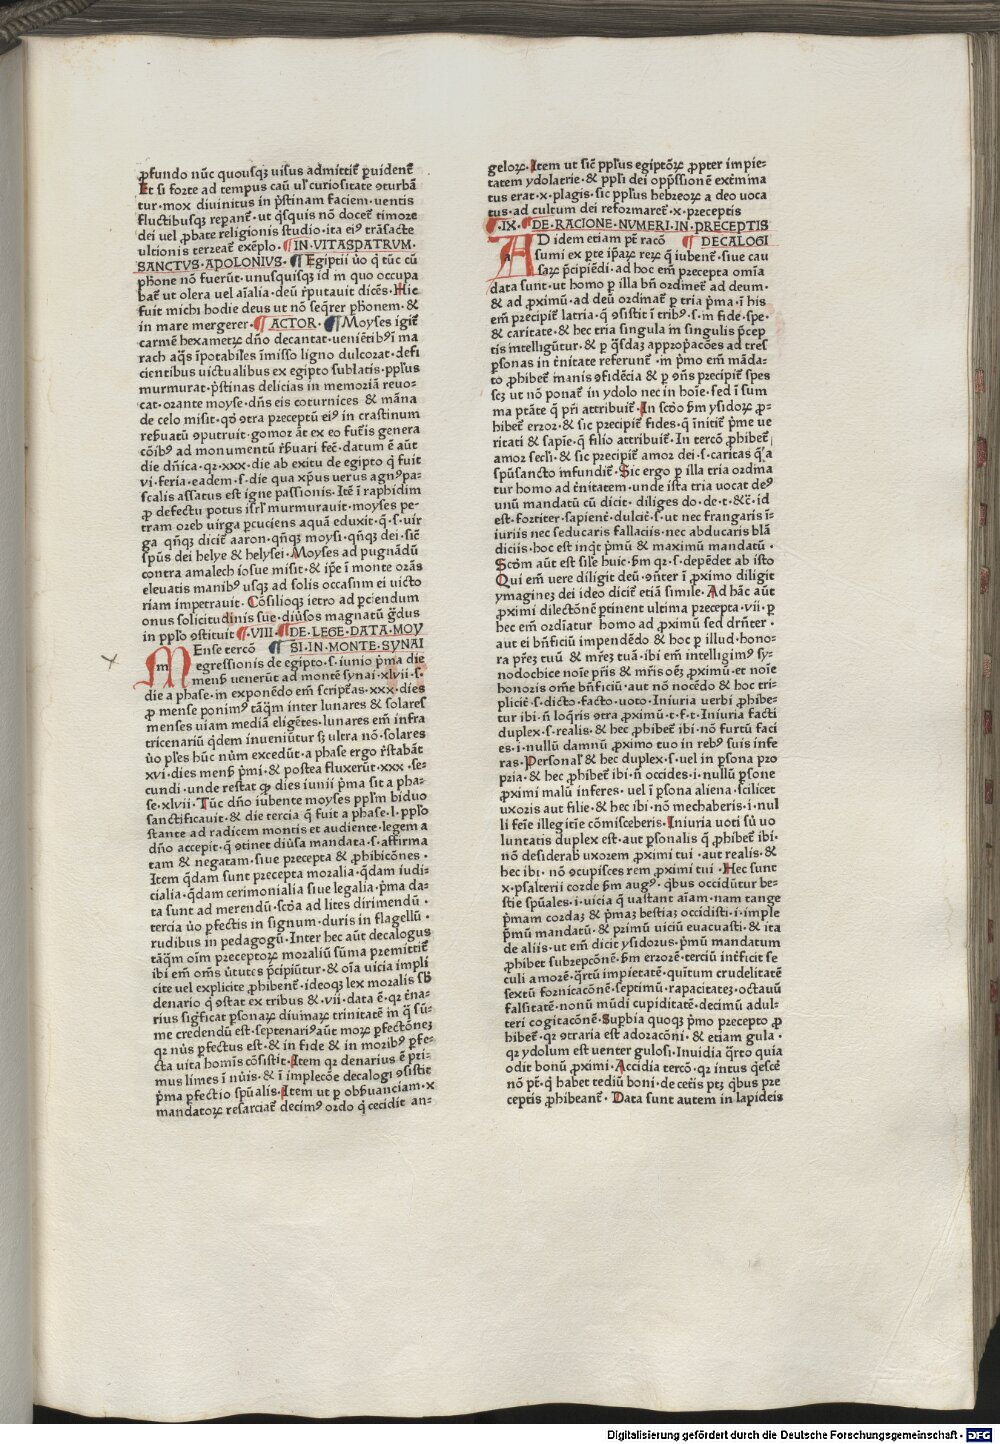 ꝓfundo nūc quousqꝫ uisus admittit̄ ꝑuident̄
Et si forte ad tempus caū ul' curiositate ꝯturbā
tur·mox diuinitus in p̄stinam faciem·uentis
fluctibusqꝫ repant̄·ut q̄squis nō docet̄ timore
dei uel ꝓbate religionis studio·ita eiꝰ trāsacte
ultionis terreat̄ exēplo·¶IN·VITASPATRVM·
SANCTVS·APOLONIVS·¶Egiptii ūo q̄ tūc cū
phone nō fuerūt·unusquisqꝫ id in quo occupa
bat̄ ut olera uel aīalia·deū r̄putauit dicēs·Hic
fuit michi hodie deus ut nō seq̄rer phonem·&
in mare mergerer·¶ACTOR·¶Moyses igit̄
carmē hexametrꝝ dño decantat·ueniētibꝰ ī ma
rach aq̄s īpotabiles īmisso ligno dulcorat·defi
cientibus uictualibus ex egipto sublatis·pplus
murmurat·p̄stinas delicias in memoriā reuo-
cat·orante moyse·dn̄s eis coturnices & māna
de celo misit·qd̄ ꝯtra preceptū eiꝰ in crastinum
resuatū ꝯputruit·gomor āt ex eo fut̄is genera
cōibꝰ ad monumentū r̄suari fec̄·datum ē aūt
die dn̄ica·qꝛ·xxx·die ab exitu de egipto q̄ fuit
vi·feria·eadem·s·die qua xp̄us uerus agnꝰ pa-
scalis assatus est igne passionis·Itē ī raphidim
ꝓ defectu potus isrl' murmurauit·moyses pe-
tram ozeb uirga ꝑcuciens aquā eduxit·q̄·s·uir
ga qn̄qꝫ dicit̄ aaron·qn̄qꝫ moysi·qn̄qꝫ dei·sic̄
spūs dei helye & helysei·Moyses ad pugnādū
contra amalech iosue misit·& ip̄e ī monte orās
eleuatis manibꝰ usqꝫ ad solis occasum ei uicto
riam impetrauit·Cōsilioqꝫ ietro ad ꝑciendum
onus solicitudinis sue·diūsos magnatū g̃dus
in pplo ꝯstituit¶·VIII·¶DE·LEGE·DATA·MOY
MEnse tercō ¶SI·IN·MONTE·SYNAI
egressionis de egipto·s·iunio p̄ma die
mens̄ uenerūt ad montē synai·xlvii·s·
die a phase·in exponēdo em̄ script̄as·xxx·dies
ꝓ mense ponimꝰ tāq̄m inter lunares & solares
menses uiam mediā eligētes·lunares em̄ infra
tricenariū q̄dem inueniūtur sꝫ ultra nō·solares
ūo ples hūc nūm excedūt·a phase ergo r̄stabāt
xvi·dies mens̄ p̄mi·& postea fluxerūt·xxx·se-
cundi·unde restat ꝙ dies iunii p̄ma sit a pha-
se·xlvii·Tūc dño iubente moyses pplm̄ biduo
sanctificauit·& die tercia q̄ fuit a phase·l·pplo
stante ad radicem montis et audiente·legem a
dño accepit·q̄ ꝯtinet diūsa mandata·s·affirma
tam & negatam·siue precepta & ꝓhibicōnes·
Item q̄dam sunt precepta moralia·q̄dam iudi-
cialia·q̄dam cerimonialia siue legalia·p̄ma da-
ta sunt ad merendū·scd̄a ad lites dirimendū·
tercia ūo ꝑfectis in signum·duris in flagellū·
rudibus in pedagogū·Inter hec aūt decalogus
tāq̄m oīm preceptorꝝ moraliū sūma premittit̄
ibi em̄ om̄s ūtutes p̄cipiūtur·& oīa uicia impli
cite uel explicite ꝓhibent̄·ideoqꝫ lex moralis sb̄
denario q̄ ꝯstat ex tribus & ·vii·data ē·qꝛ t̄na-
rius sigficat ꝑsonarꝝ diuinarꝝ trinitatē in q̄ sū-
me credendū est·septenariꝰ aūt morꝝ ꝑfectōneꝫ
qꝛ nūs ꝑfectus est·& in fide & in moribꝰ ꝑfe-
cta uita hominis cōsistit·Item qꝛ denarius ē pri-
mus limes ī nūis·& ī implecōe decalogi ꝯsistit
p̄ma ꝑfectio spūalis·Item ut ꝑ obs̄uanciam·x
mandatorꝝ resarciat̄ decimꝰ ordo q̄ cecidit an-
gelorꝝ·Item ut sic̄ pplus egiptōrꝝ ꝓpter impie-
tatem ydolatrie·& ppli dei opp̄ssionē ext̄mina
tus erat·x·plagis·sic pplus hebreorꝝ a deo uoca
tus·ad cultum dei reformaret̄·x·preceptis
¶·IX·¶DE·RACIONE·NVMERI·IN·PRECEPTIS
AD idem etiam pt̄ racō ¶DECALOGI
sumi ex ꝑte ip̄arꝝ rerꝝ q̄ iubent̄·siue cau
sarꝝ p̄cipiēdi·ad hoc em̄ precepta omīa
data sunt·ut homo ꝑ illa bn̄ ordinet̄ ad deum·
& ad ꝓximū·ad deū ordinat̄ ꝑ tria p̄ma·ī his
em̄ precipit̄ latria·q̄ ꝯsistit ī tribꝰ·s·in fide·spe·
& caritate·& hec tria singula in singulis p̄cep
tis intelligūtur·& ꝑ q̄sdaꝫ appropacōes ad tres
ꝑsonas in t̄nitate referunt̄·in p̄mo em̄ māda-
to ꝓhibet̄ manis ꝯfidēcia & ꝑ ꝯn̄s precipit̄ spes
scꝫ ut nō ponat̄ in ydolo nec in hoīe·sed ī sum
ma ptāte q̄ pr̄i attribuit̄·In scd̄o s̄m ysidorꝝ ꝓ-
hibet̄ error·& sic precipit̄ fides·q̄ īnitit̄ p̄me ue
ritati & sapīe·q̄ filio attribuit̄·In tercō ꝓhibet̄
amor secli·& sic precipit̄ amor dei·s·caritas q̄ a
spūsancto infundit̄·Sic ergo ꝑ illa tria ordina
tur homo ad t̄nitatem·unde ista tria uocat deꝰ
unū mandatū cū dicit·diliges do·de·t·&c̄·id
est·fortiter·sapient̄·dulcit̄·s·ut nec frangaris ī-
iuriis nec seducaris fallaciis·nec abducaris blā
diciis·hoc est inq̄t p̄mū & maximū mandatū·
Scd̄m aūt est sile huic·s̄m qꝛ·s·depēdet ab isto
Qui em̄ uere diligit deū·ꝯn̄ter ī ꝓximo diligit
ymagineꝫ dei ideo dicit̄ etiā simile·Ad hāc aūt
ꝓximi dilectōnē ꝑtinent ultima precepta·vii·ꝑ
hec em̄ ordīatur homo ad ꝓximū sed drn̄ter·
aut ei bn̄ficiū impendēdo & hoc ꝑ illud·hono-
ra pr̄eꝫ tuū & mr̄eꝫ tuā·ibi em̄ intelligimꝰ sy-
nodochice noīe pr̄is & mr̄is oēꝫ ꝓximū·et noīe
honoris om̄e bn̄ficiū·aut nō nocēdo & hoc tri-
plicit̄·s·dicto·facto·uoto·Iniuria uerbi ꝓhibe-
tur ibi·n̄ loq̄ris ꝯtra ꝓximū·t·f·t·Iniuria facti
duplex·s·realis·& hec ꝓhibet̄ ibi·nō furtū faci
es·i·nullū damnū ꝓximo tuo in rebꝰ suis infe
ras·Personal' & hec duplex·s·uel in ꝑsona pro
pria·& hec ꝓhibet̄ ibi·n̄ occides·i·nullū ꝑsone
ꝓximi malū inferes·uel ī ꝑsona aliena·scilicet
uxoris aut filie·& hec ibi·nō mechaberis·i·nul
li feīe illegitīe cōmisceberis·Iniuria uoti sū uo
luntatis duplex est·aut ꝑsonalis q̄ ꝓhibet̄ ibi·
nō desiderab' uxorem ꝓximi tui·aut realis·&
hec ibi·nō ꝯcupisces rem ꝓximi tui·Hec sunt
x·psalterii corde s̄m augꝰ·q̄bus occidūtur be-
stie spūales·i·uicia q̄ uastant aīam·nam tange
p̄mam cordaꝫ & p̄maꝫ bestiaꝫ occidisti·i·imple
p̄mū mandatū·& primū uiciū euacuasti·& ita
de aliis·ut em̄ dicit ysidorus·p̄mū mandatum
ꝓhibet subrepcōnē·s̄m errorē·terciū int̄ficit se
culi amorē·q̄rtū impietatē·quītum crudelitatē
sextū fornicacōnē·septimū·rapacitateꝫ·octauū
falsitatē·nonū mūdi cupiditatē·decimū adul-
teri cogitacōnē·Supbia quoqꝫ p̄mo precepto ꝓ
hibet̄·qꝛ ꝯtraria est adoracōni·& etiam gula·
qꝛ ydolum est uenter gulosi·Inuidia q̄rto quia
odit bonū ꝓximi·Accidia tercō·qꝛ intus q̄escē
nō pt̄·q̄ habet tediū boni·de cet̄is ptꝫ q̄bus pre
ceptis ꝓhibeant̄·Data sunt autem in lapideis
Digitalisierung gefördert durch die Deutsche Forschungsgemeinschaft · DFG